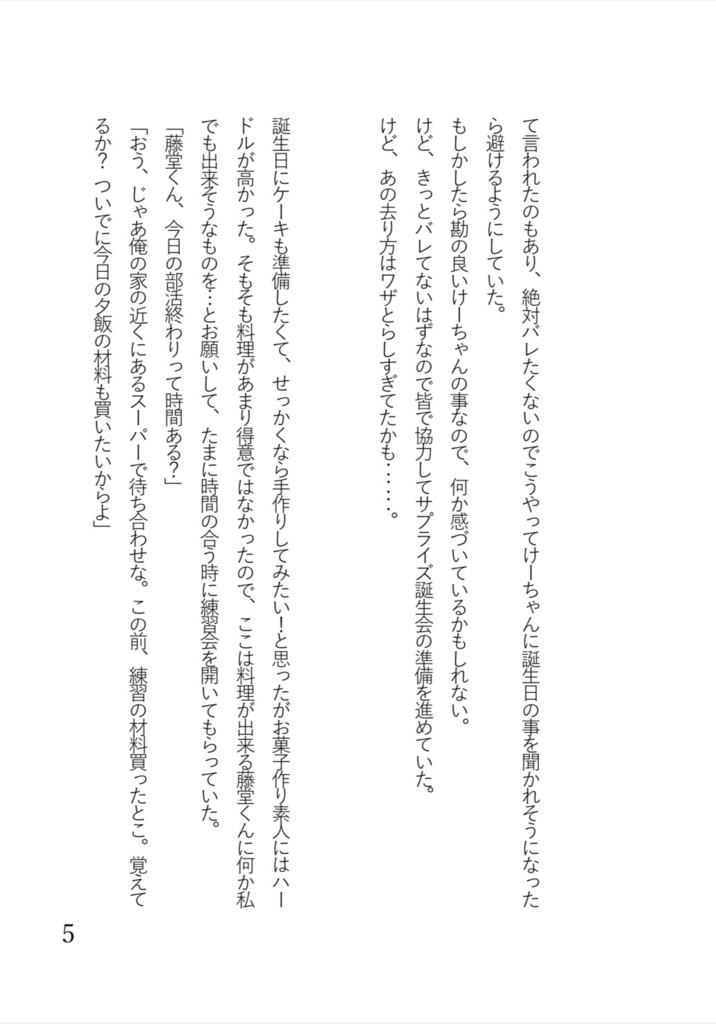 て言われたのもあり、絶対バレたくないのでこうやってけーちゃんに誕生日の事を聞かれそうになった
ら避けるようにしていた。
もしかしたら勘の良いけーちゃんの事なので、何か感づいているかもしれない。
けど、きっとバレてないはずなので皆で協力してサプライズ誕生会の準備を進めていた。
けど、あの去り方はワザとらしすぎてたかも……。
誕生日にケーキも準備したくて、せっかくなら手作りしてみたい！と思ったがお菓子作り素人にはハー
ドルが高かった。そもそも料理があまり得意ではなかったので、ここは料理が出来る藤堂くんに何か私
でも出来そうなものを…とお願いして、たまに時間の合う時に練習会を開いてもらっていた。
「藤堂くん、今日の部活終わりって時間ある？」
「おう、じゃあ俺の家の近くにあるスーパーで待ち合わせな。この前、練習の材料買ったとこ。覚えて
るか？ ついでに今日の夕飯の材料も買いたいからよ」
5